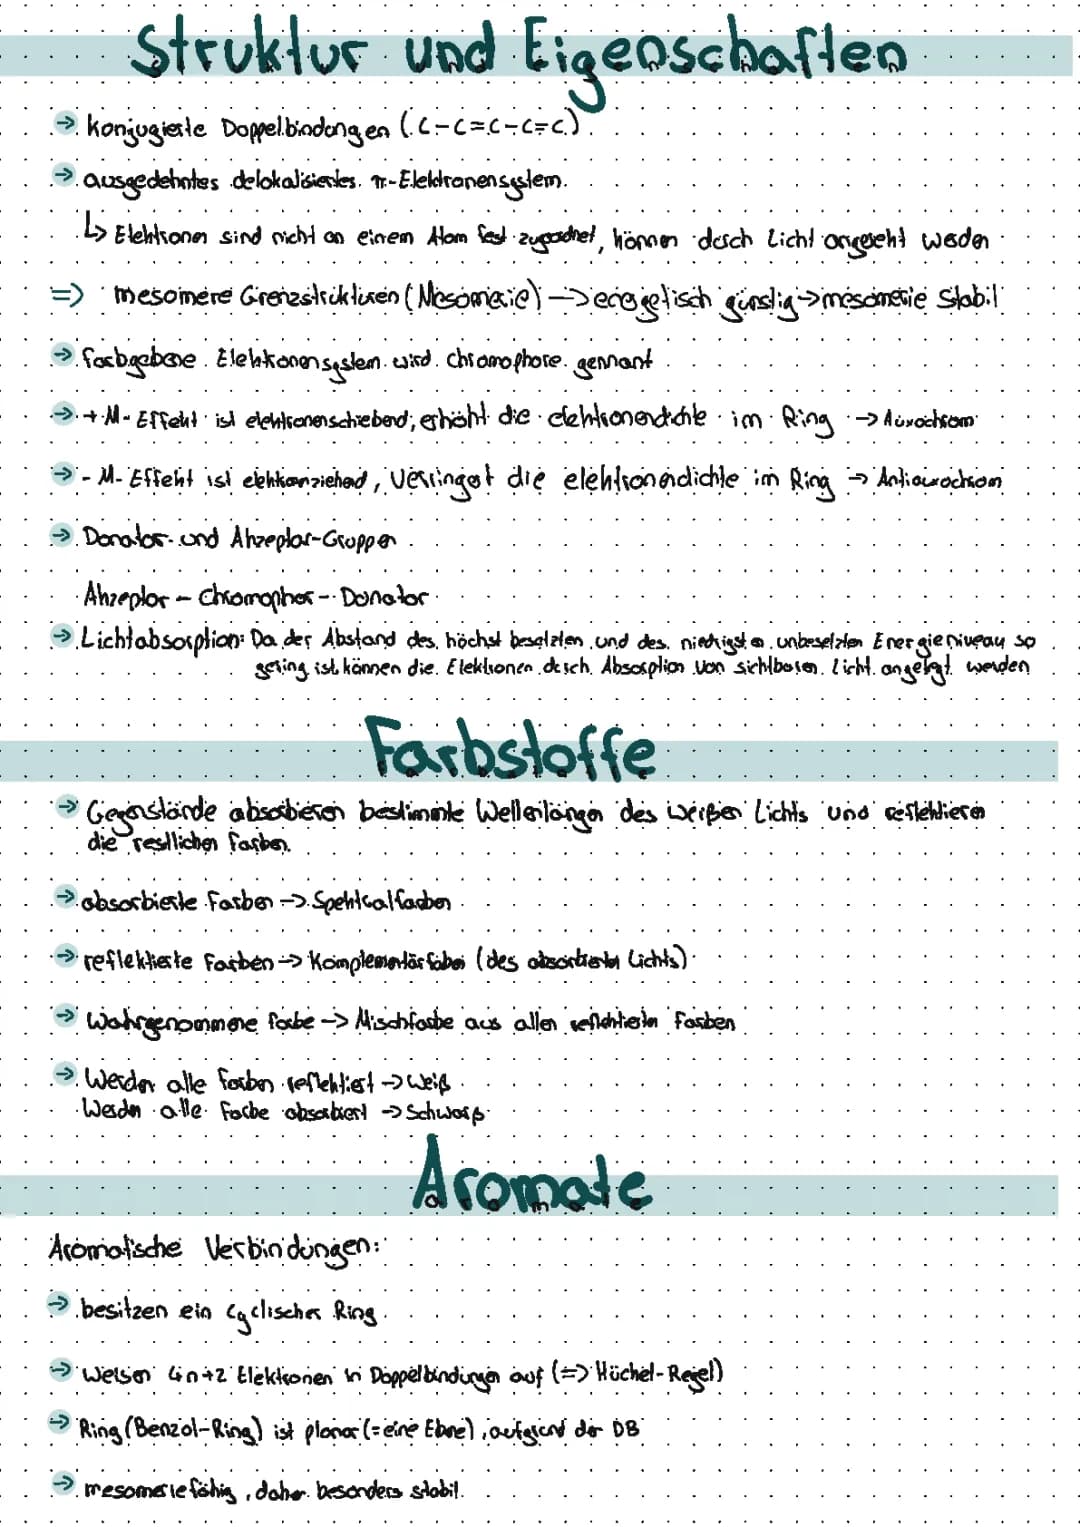 Struktur und Eigenschaften
→ konjugierte Doppelbindungen (C-C=C-C=C)
→ ausgedehntes delokalisiertes π-Elektronensystem.
↳ Elektronen sind nicht an einem Atom fest zugeordnet, können durch Licht angeregt werden
=> mesomere Grenzstrukturen (Mesomerie) → energetisch günstig → mesomerie stabil
→ farbgebene Elektronensystem wird chromophore gennant
→ +M-Effekt ist elektronenschiebend; erhöht die elektronendichte im Ring → Auxochrom
→ -M-Effekt ist elektronziehend, verringert die elektronendichte im Ring → Antiauxochrom
→ Donator- und Akzeptor-Gruppen
Akzeptor - Chromophor - Donator
→ Lichtabsorption: Da der Abstand des höchst besetzten und des niedrigsten unbesetzten Energieniveau so
gering ist können die Elektronen durch Absorption von sichtbaren Licht angeregt werden
Farbstoffe
→ Gegenstände absorbieren bestimmte Wellenlängen des weißen Lichts und reflektieren
die restlichen Farben.
→ absorbierte Farben → Spektralfarben
→ reflektierte Farben → Komplementärfarben (des absorbierten Lichts)
→ Wahrgenommene Farbe → Mischfarbe aus allen reflektierten Farben
→ Werden alle Farben reflektiert → Weiß
Werden alle Farbe absorbiert → Schwarz
Aromate
Aromatische Verbindungen:
→ besitzen ein cyclischer Ring
→ Weisen 4n+2 Elektronen in Doppelbindungen auf (=> Hückel-Regel)
→ Ring (Benzol-Ring) ist planar (= eine Ebne), aufgrund der DB
→ mesomeriefähig, daher besonders stabil.